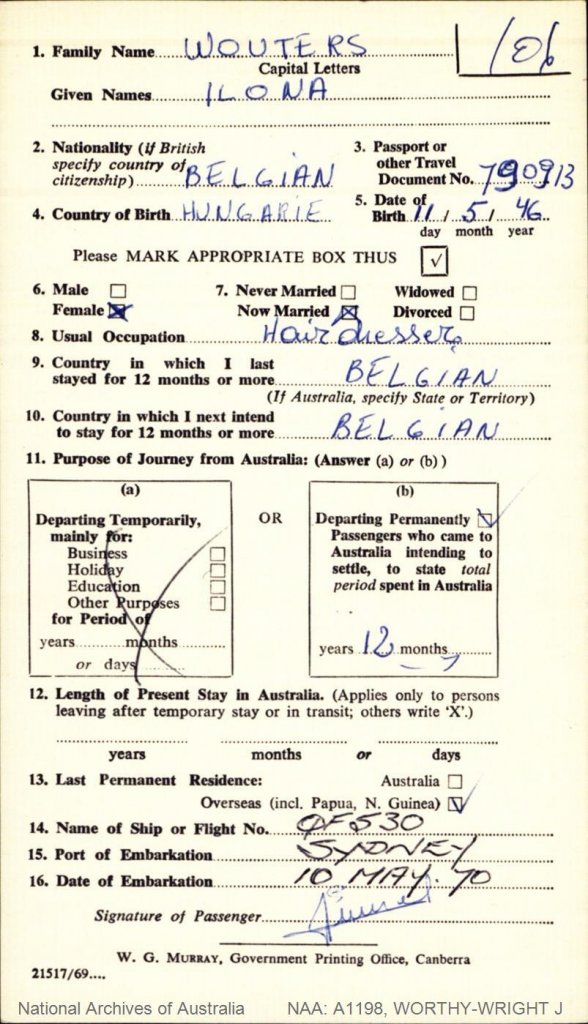 1. Family Name WOUTERS 106
Capital Letters
Given Names ILONA
2. Nationality (if British specify country of citizenship) BELGIAN
3. Passport or other Travel Document No. 790913
4. Country of Birth HUNGARIE
5. Date of Birth 11 / 5 / 46
day month year
Please MARK APPROPRIATE BOX THUS √
6. Male
Female
7. Never Married Widowed
Now Married Divorced
8. Usual Occupation Hairdresser
9. Country in which I last
stayed for 12 months or more BELGIAN
(If Australia, specify State or Territory)
10. Country in which I next intend
to stay for 12 months or more BELGIAN
11. Purpose of Journey from Australia: (Answer (a) or (b))
(a)
Departing Temporarily,
mainly for:
Business
Holiday
Education
Other Purposes
for Period of
years months
or days
OR
(b)
Departing Permanently
Passengers who came to
Australia intending to
settle, to state total
period spent in Australia
years 12 months
12. Length of Present Stay in Australia. (Applies only to persons
leaving after temporary stay or in transit; others write 'X'.)
years months or days
13. Last Permanent Residence: Australia
Overseas (incl. Papua, N. Guinea)
14. Name of Ship or Flight No. QF530
15. Port of Embarkation SYDNEY
16. Date of Embarkation 10 MAY. 70
Signature of Passenger
W. G. MURRAY, Government Printing Office, Canberra
21517/69....
National Archives of Australia NAA: A1198, WORTHY-WRIGHT J